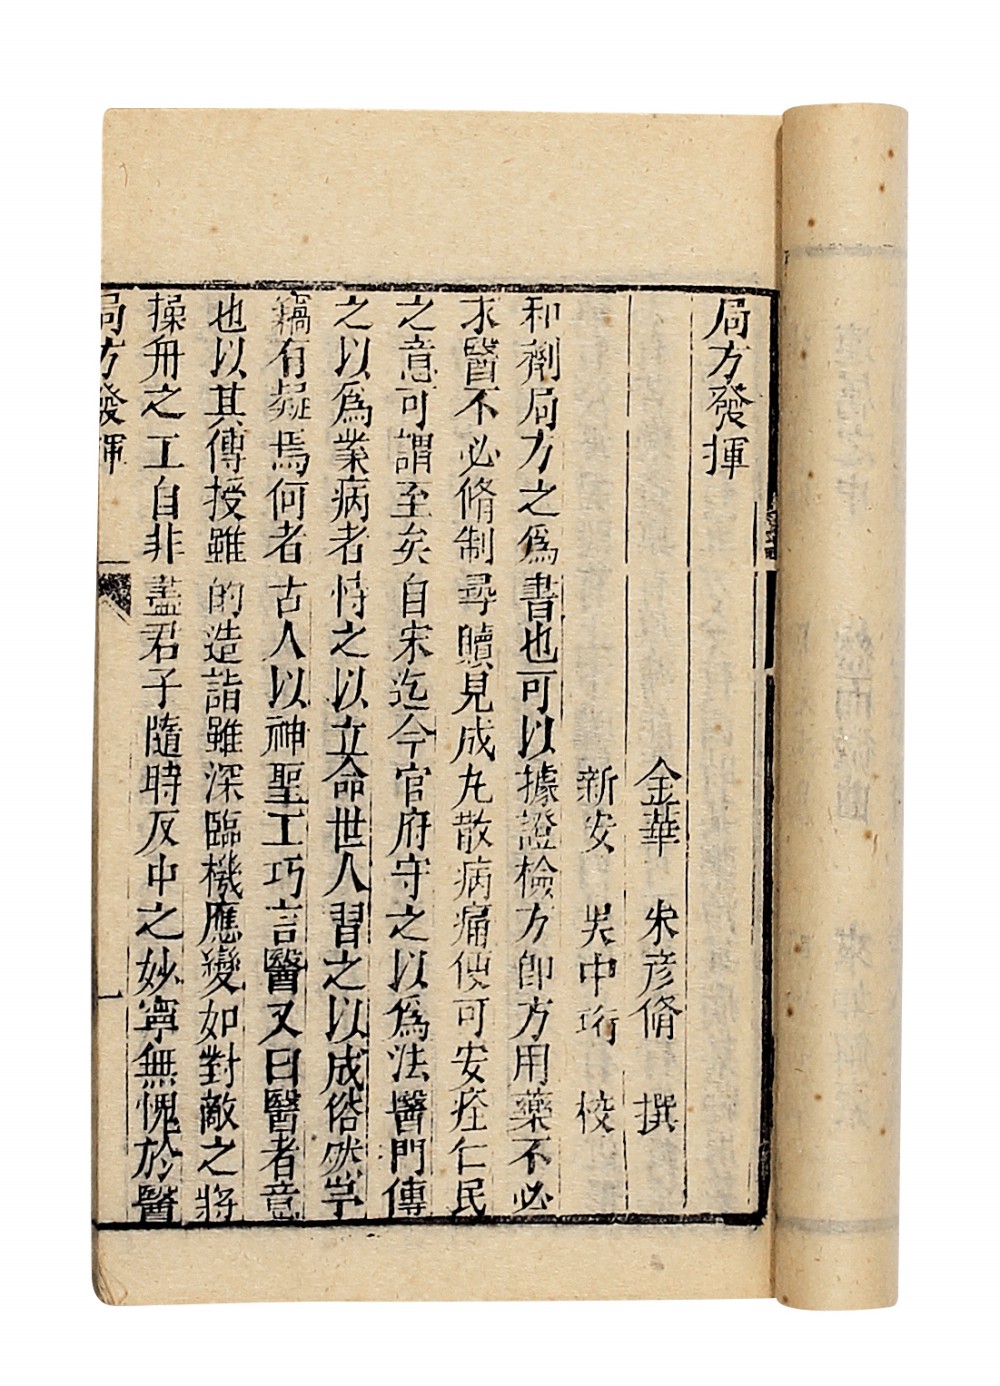 局方發揮
金華　朱彦脩　撰
新安　吳中珩　校
和劑局方之爲書也可以據證檢方即方用藥不必
求醫不必脩制尋贖見成丸散病痛便可安痊仁民
之意可謂至矣自宋迄今官府守之以爲法醫門傳
之以爲業病者恃之以立命世人習之以成俗然予
竊有疑焉何者古人以神聖工巧言醫又曰醫者意
也以其傳授雖的造詣雖深臨機應變如對敵之將
操舟之工自非盡君子隨時反中之妙寧無愧於醫
局方發揮　一